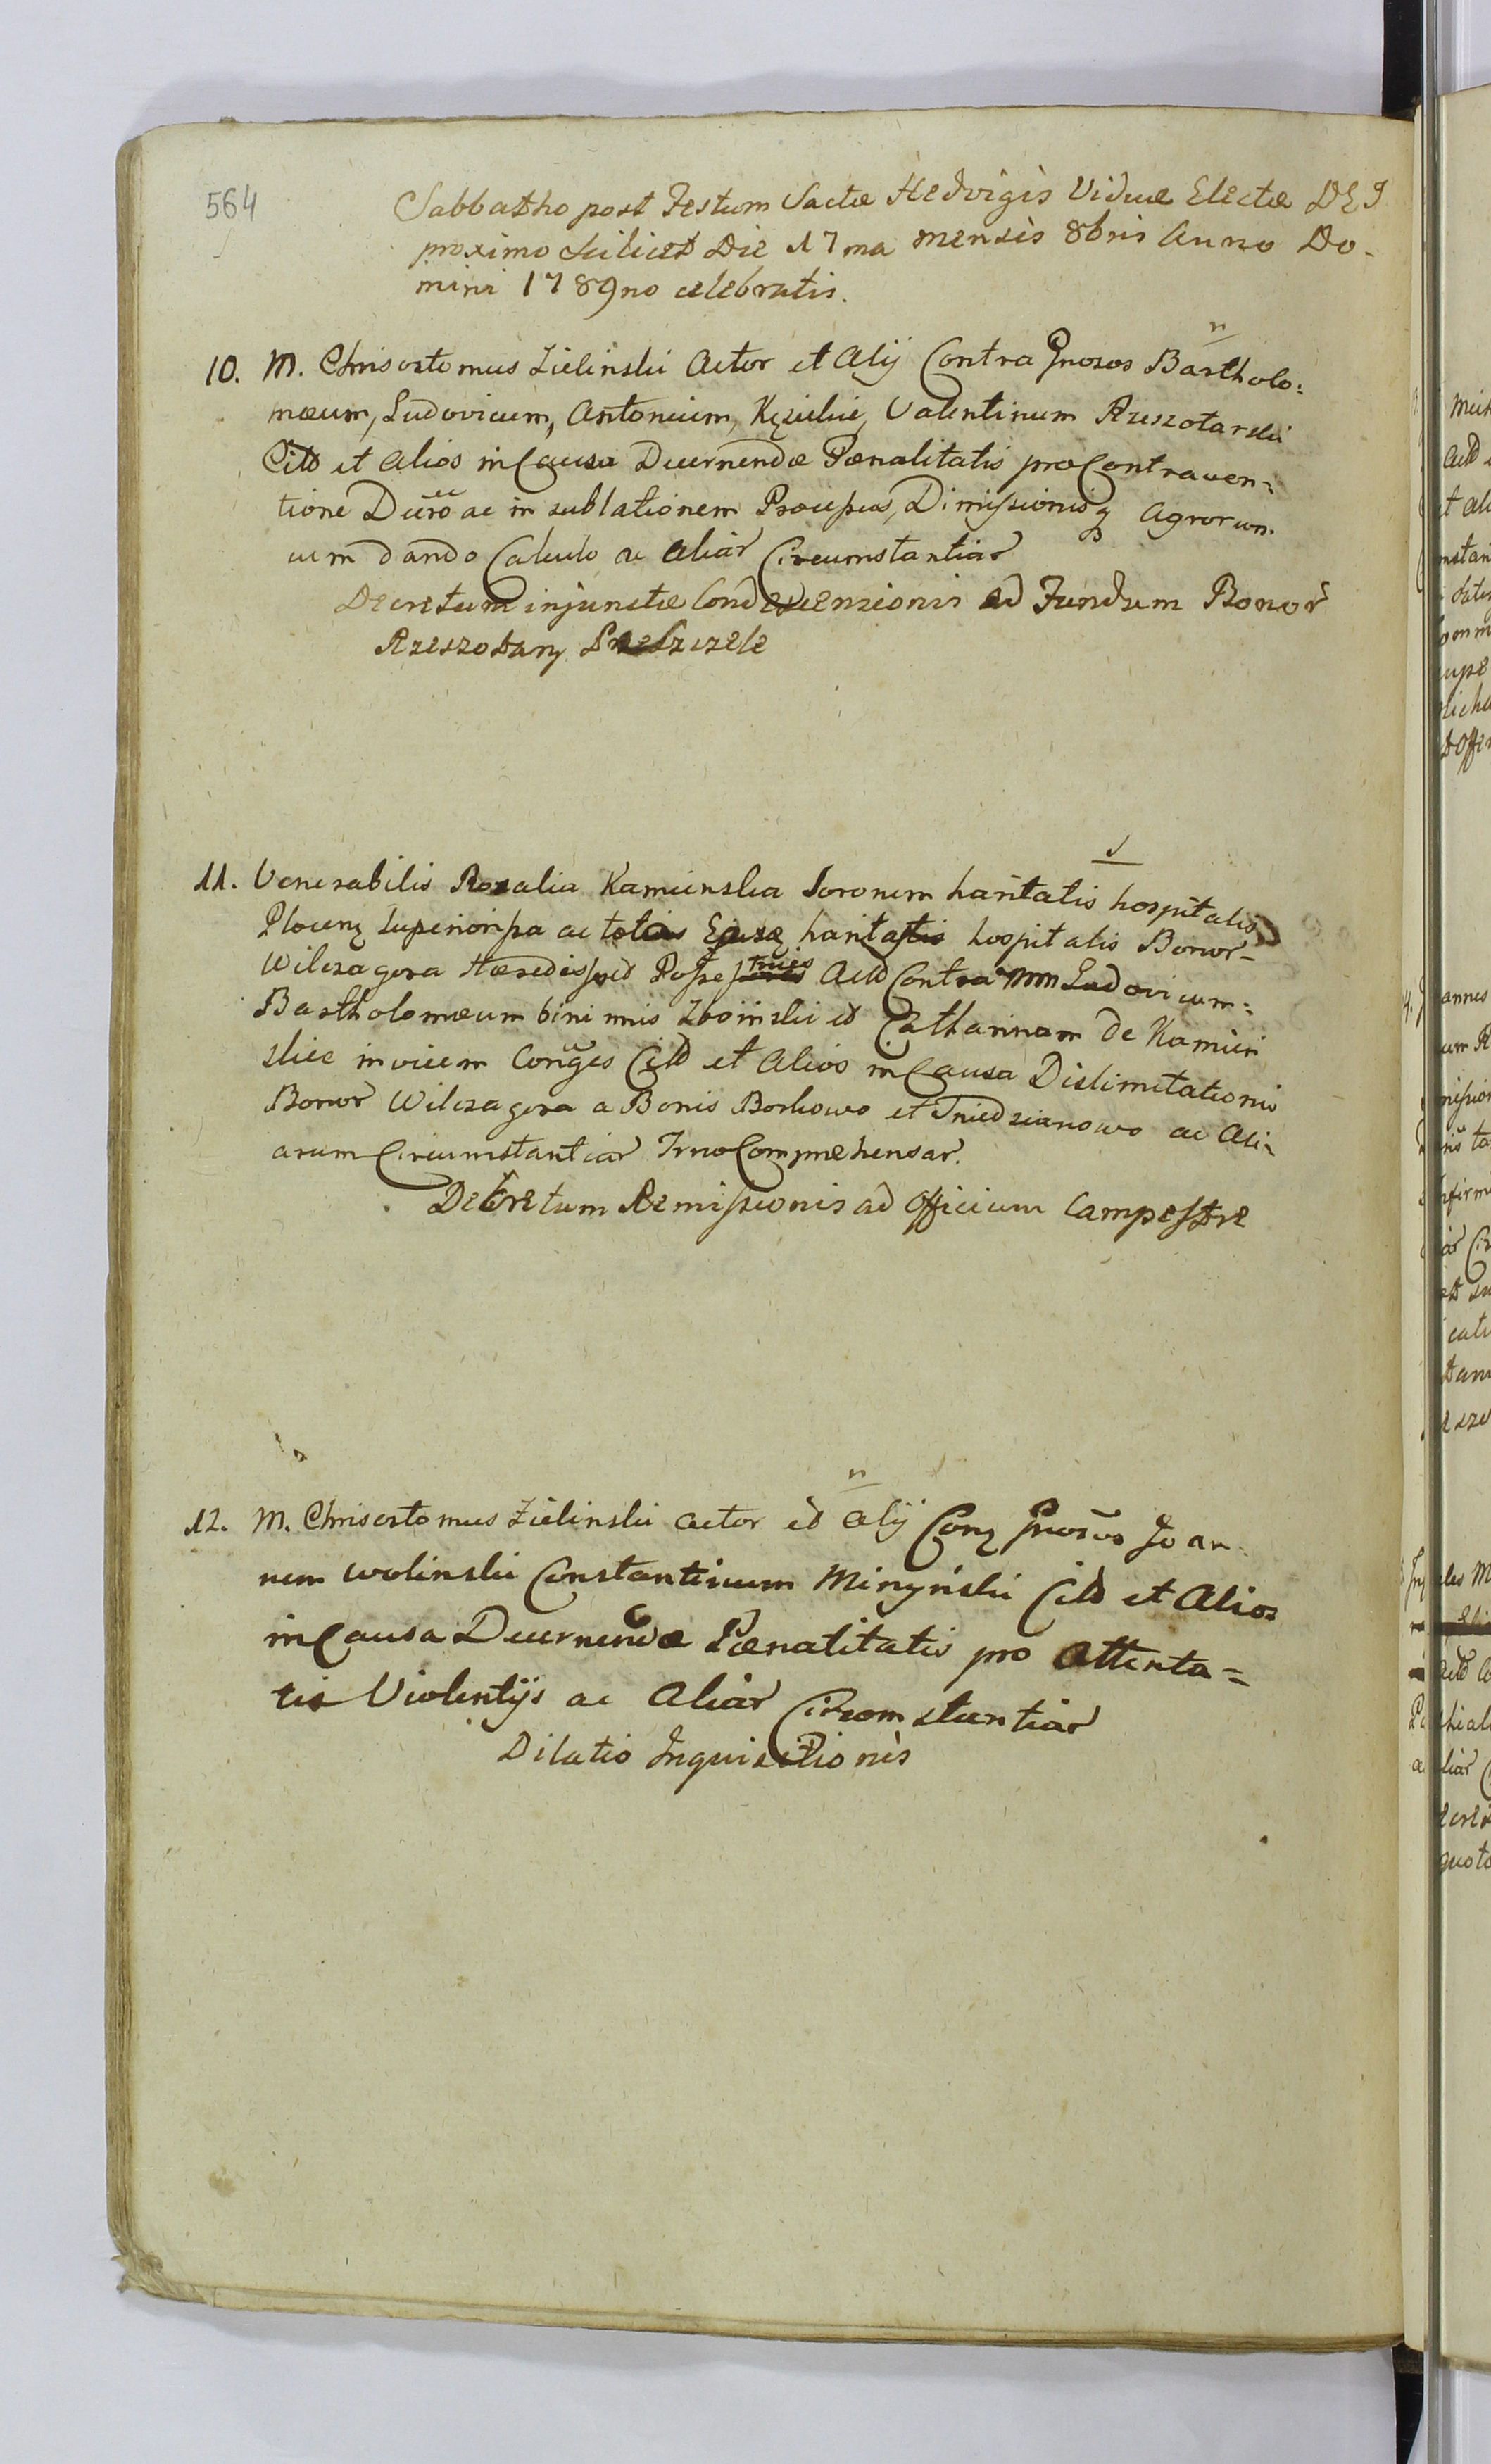 564
Sabbatho post Festum Sactæ Hedvigis Viduæ Electæ DEI
proximo scilicet Die 17ma mensis 8bris Anno Do-
mini 1789no celebratis.
n
10. M. Chrisostomus Zielinski Actor et Alij Contra Gnosos Bartholo:
mæum, Ludovicum, Antonium, Kęsickie, Valentinum Rzeszotarski
Citt et Alios in Causa Decernendæ Pænalitatis pro Contraven:
tione ac in sublationem Dimissionisq Agrorum.
cum dando Calculo ac Aliar Circumstantiar
Decretum injunctæ Condescensionis ad Fundum Bonor
Rzeszotary
s
11. Venerabilis Rozalia Kamienska Sororum haritatis hospitalis
Plocens Superiorissa ac totius haritatis hospitalis Bonor
Wilczagora Hæredis Act Contra MM Ludovicum:
Bartholomæum bini nnis Zboinski et Catharinam de Kamien
skie invicem Conges Citt et Alios in Causa Dislimitationis
Bonor Wilczagora a Bonis Borkowo et Sniedzianowo ac Ali-
arum Circumstantiar Comprehensar.
Decretum Remissionis ad Officium Campestre
n
12. M. Chrisostomus Zielinski Actor et Alij Con Gnosos Joan-
nem Wolinski Constantinum Minynski Citt et Alios
in Causa Decernendæ Pænalitatis pro Attenta=
tis Violentijs ac Aliar Circomstantiar
Dilatio Inquisitionis